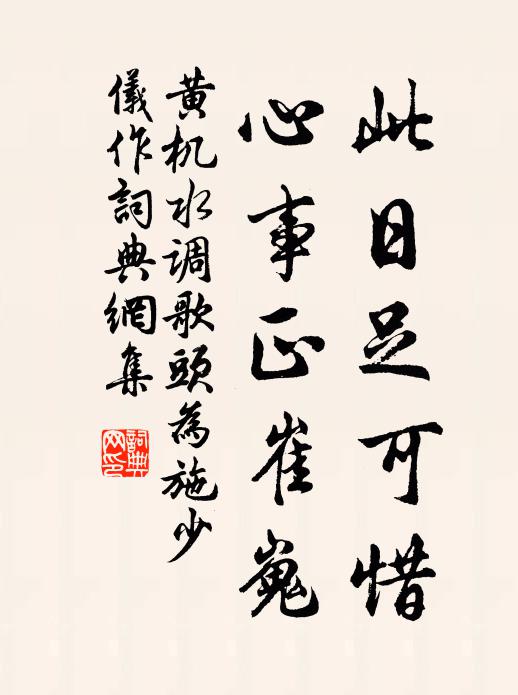 此日足可惜
心事正崔嵬
黄机水调歌頭為施少
儀作詞典網集
詞典网印